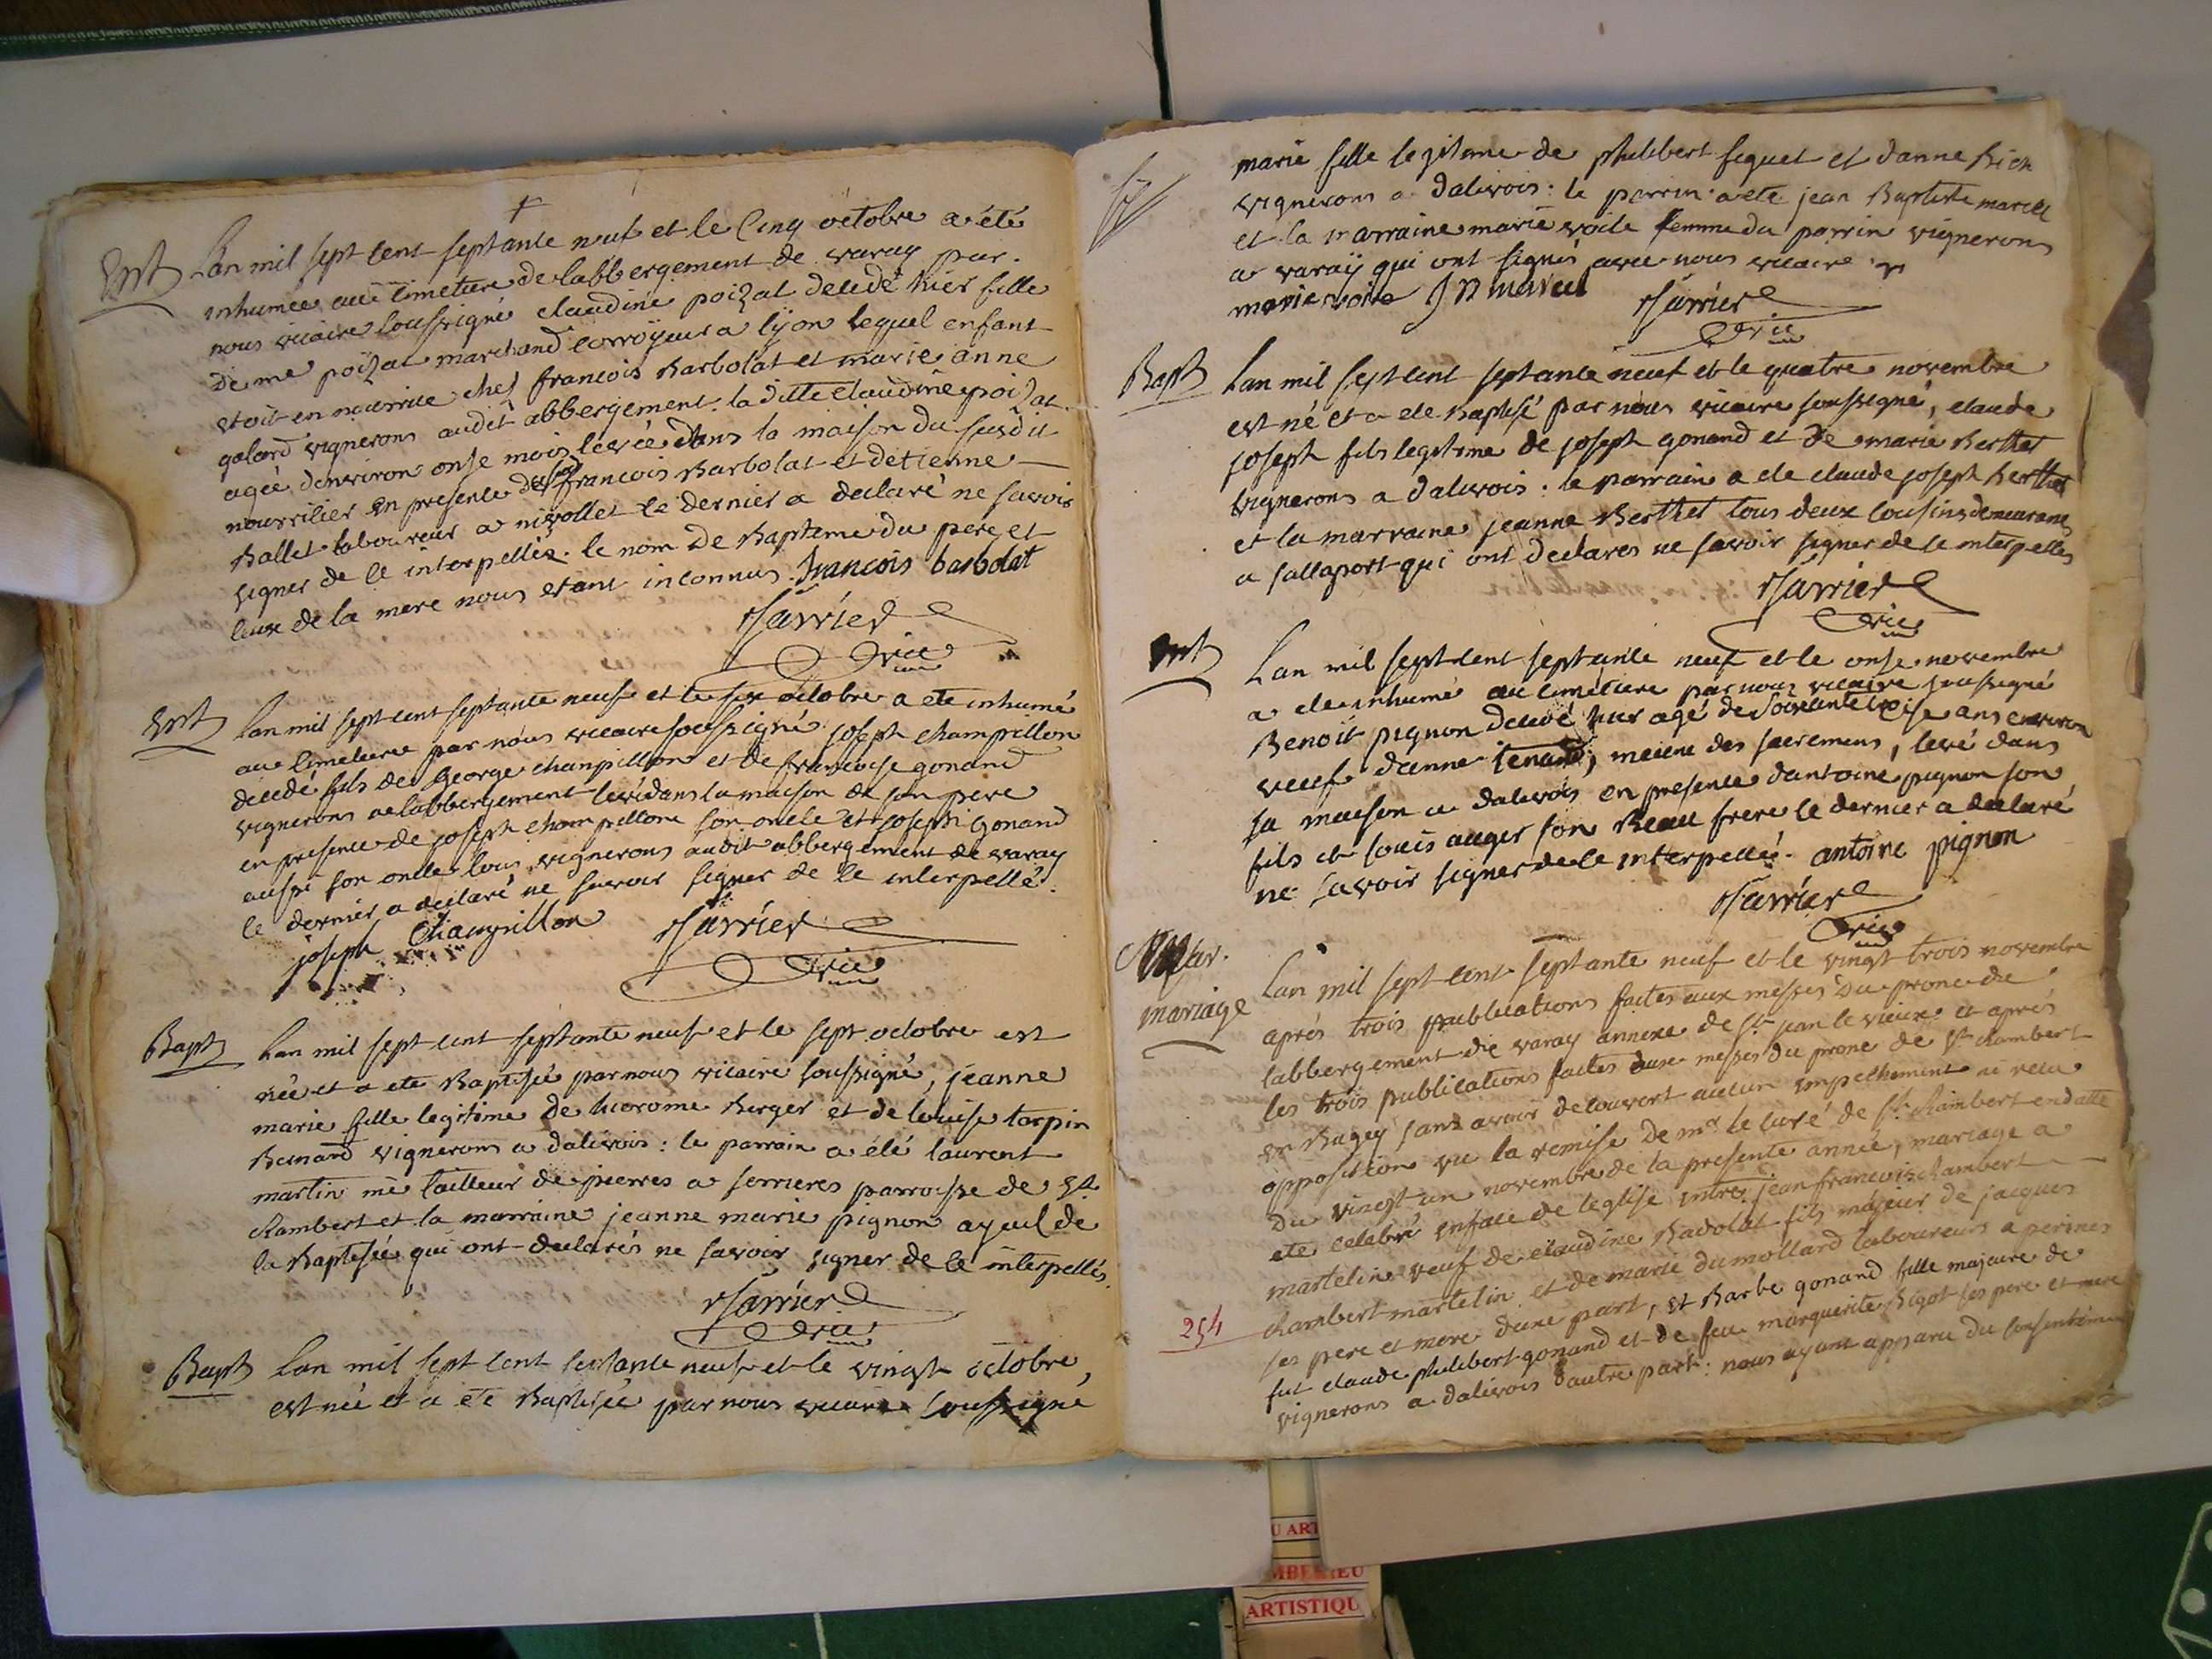 Ent
Lan mil sept cent septante neuf et le cinq octobre a été
inhumee au cimetiere de labbergement de varay par
nous vicaire soussigné claudine poizat decedé hier fille
de me poizat marchand corroyeur a lyon lequel enfant
etoit en nourrice chez francois Barbolat et marie anne
galand vignerons audit abbergement. la ditte claudine poizat
agée denviron onse mois levée dans la maison du susdit
nourricier en presence dudit francois Barbolat et detienne
Ballet laboureur a nivollet le dernier a declaré ne savoir
signer de ce interpellés. le nom de Bapteme du pere et
ceux de la mere nous etant inconnus. francois barbolat
Sarrier
vic
Ent
Lan mil sept cent septante neuf et le six octobre a ete inhumé
au cimetiere par nous vicaire soussigné joseph champillon
decedé fils de George champillon et de francoise gonand
vignerons a labbergement levé dans la maison de son pere
en presence de joseph champillon son oncle et joseph gonand
aussi son oncle tous vignerons audit abbergement de varay
le dernier a declaré ne savoir signer de ce interpellé.
joseph Champillon Sarrier
vic
Bapt
Lan mil sept cent septante neuf et le sept octobre est
née et a ete Baptisée par nous vicaire soussigné, jeanne
marie fille legitime de hierome Berger et de louise tarpin
Bernard vignerons a dalivois: le parrain a été laurent
martin me tailleur de pierres a serrieres parroisse de St
Rambert et la marraine jeanne marie pignon ayeul de
la Baptisée qui ont declarés ne savoir signer de ce interpellés.
Sarrier
vic
Bapt
Lan mil sept cent septante neuf et le vingt octobre,
est née et a ete Baptisée par nous vicaire soussigné
marie fille legitime de philibert fiquet et danne
vignerons a dalivois: le parrin a ete jean Baptiste marcel
et la marraine marie voile femme du parrin vignerons
a varay qui ont signés avec nous vicaire
marie voile J B marcel Sarrier
vic
Bapt
Lan mil sept cent septante neuf et le quatre novembre
est né et a ete Baptisé par nous vicaire soussigné, claude
joseph fils legitime de joseph gonand et de marie Berthet
vignerons a dalivois: le parrain a ete claude joseph berthet
et la marraine jeanne Berthet tous deux cousins demeurants
a sallaport qui ont declares ne savoir signer de ce interpellés
Sarrier
vic
Ent
Lan mil sept cent septante neuf et le onse novembre
a ete inhumé au cimetiere par nous vicaire soussigné
Benoit pignon decedé hier agé de Soixante treise ans environ
veuf danne tenand, meiene des sacremens, levé dans
sa maison a dalivois en presence dantoine pignon son
fils et louis auger son Beau frere le dernier a declaré
ne savoir signer de ce interpellé. antoine pignon
Sarrier
vic
Mar.
mariage
Lan mil sept cent septante neuf et le vingt trois novembre
aprés trois publications faites aux messes du prone de
labbergement de varay annexe de St jean le vieux et aprés
les trois publications faites aux messes du prone de St Rambert
en Bugey sans avoir decouvert aucun empechement ni recu
opposition vu la remise de mr le curé de St Rambert en datte
du vingt un novembre de la presente année, mariage a
ete celebré en face de leglise entre jean francois Rambert
martelin veuf de claudine Radolat fils majeur de jacques
Rambert martelin et de marie dumollard laboureurs a
ses pere et mere dune part, et Barbe gonand fille majeure de
fut claude philibert gonand et de feu marguerite Bigot ses pere et mere
vignerons a dalivois dautre part: nous ayant apparu du consentement
254
U ART
MBERIEU
ARTISTIQU